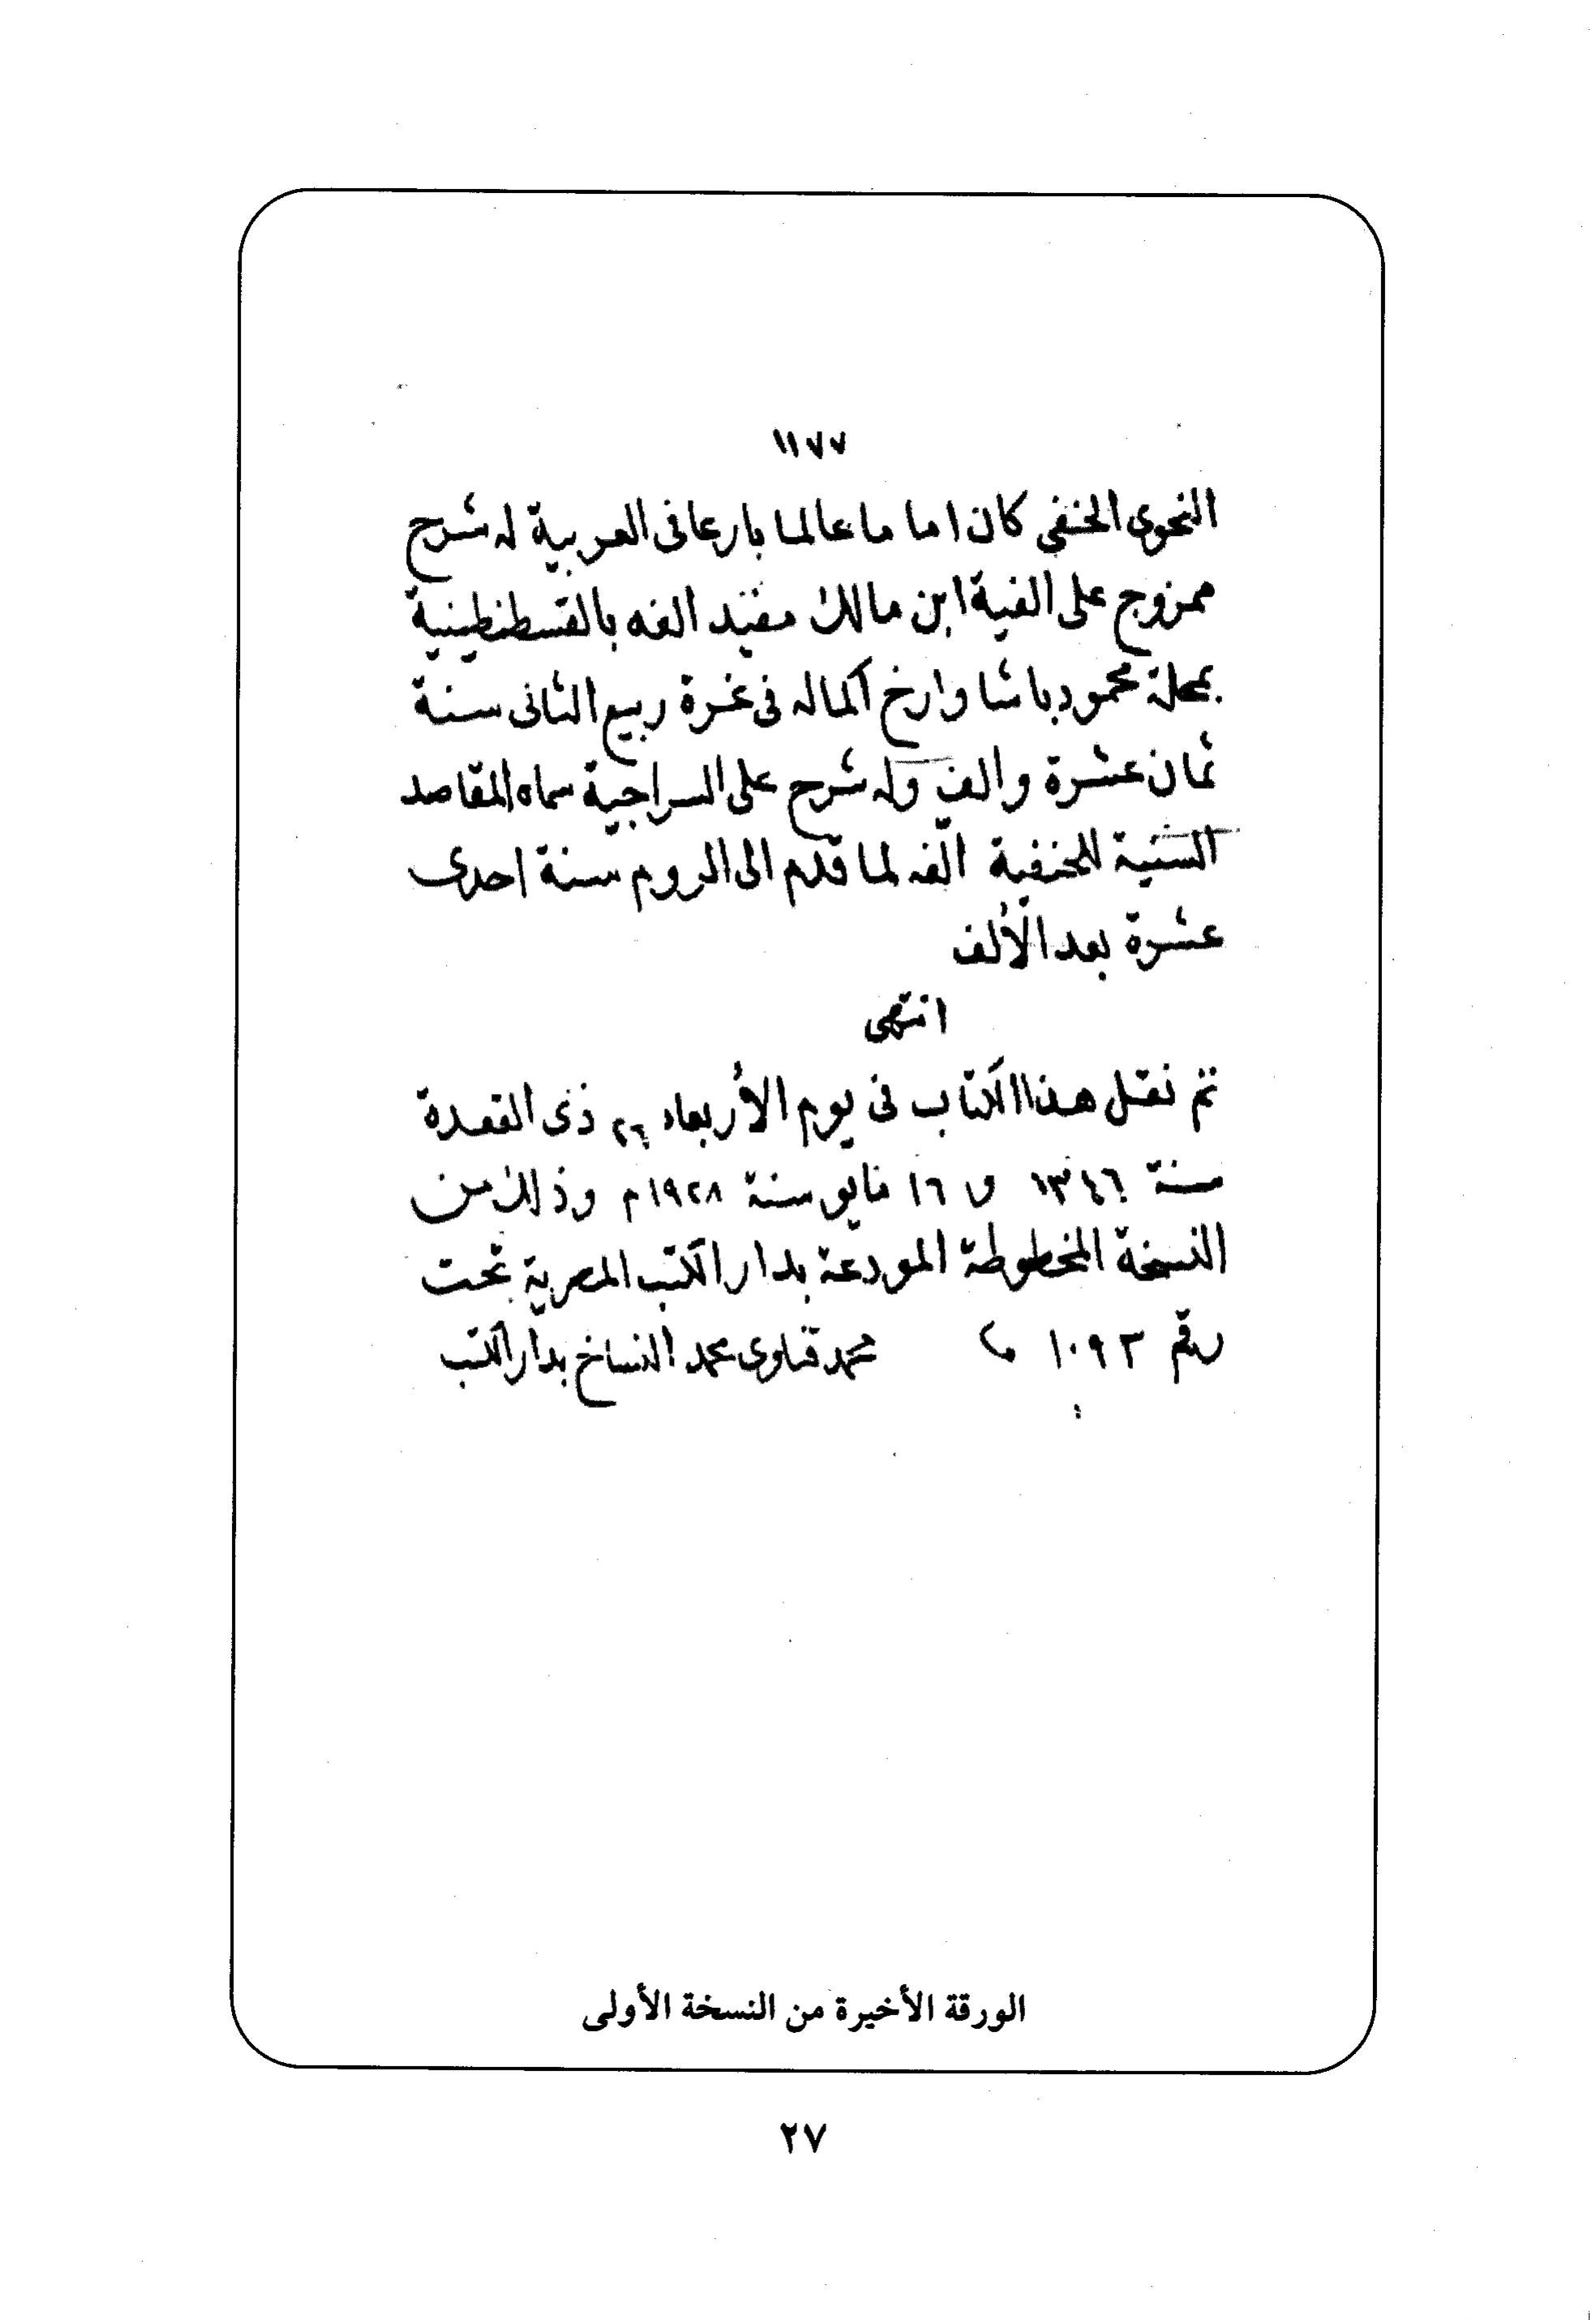 ١١٧٧
النحوى الحنفي كان اماما عالما بارعا فى العربية له شرح
ممزوج على الفية ابن مالك مفيد الفه بالقسطنطينية
بمحلة محمود باشا وارخ اكماله فى غرة ربيع الثانى سنة
ثمان عشرة والف وله شرح على السراجية سماه المقاصد
السنية للحنفية الفه لما قدم الى الروم سنة احدى
عشرة بعد الألف
انتهى
تم نقل هذا الكتاب فى يوم الأربعاء ٢٦ ذى القعدة
سنة ١٣٤٦ و ١٦ مايو سنة ١٩٢٨ م وذلك من
النسخة المخطوطة المودعة بدار الكتب المصرية تحت
رقم ١٠٩٣ محمد قناوى محمد النساخ بدار الكتب
الورقة الأخيرة من النسخة الأولى
٢٧